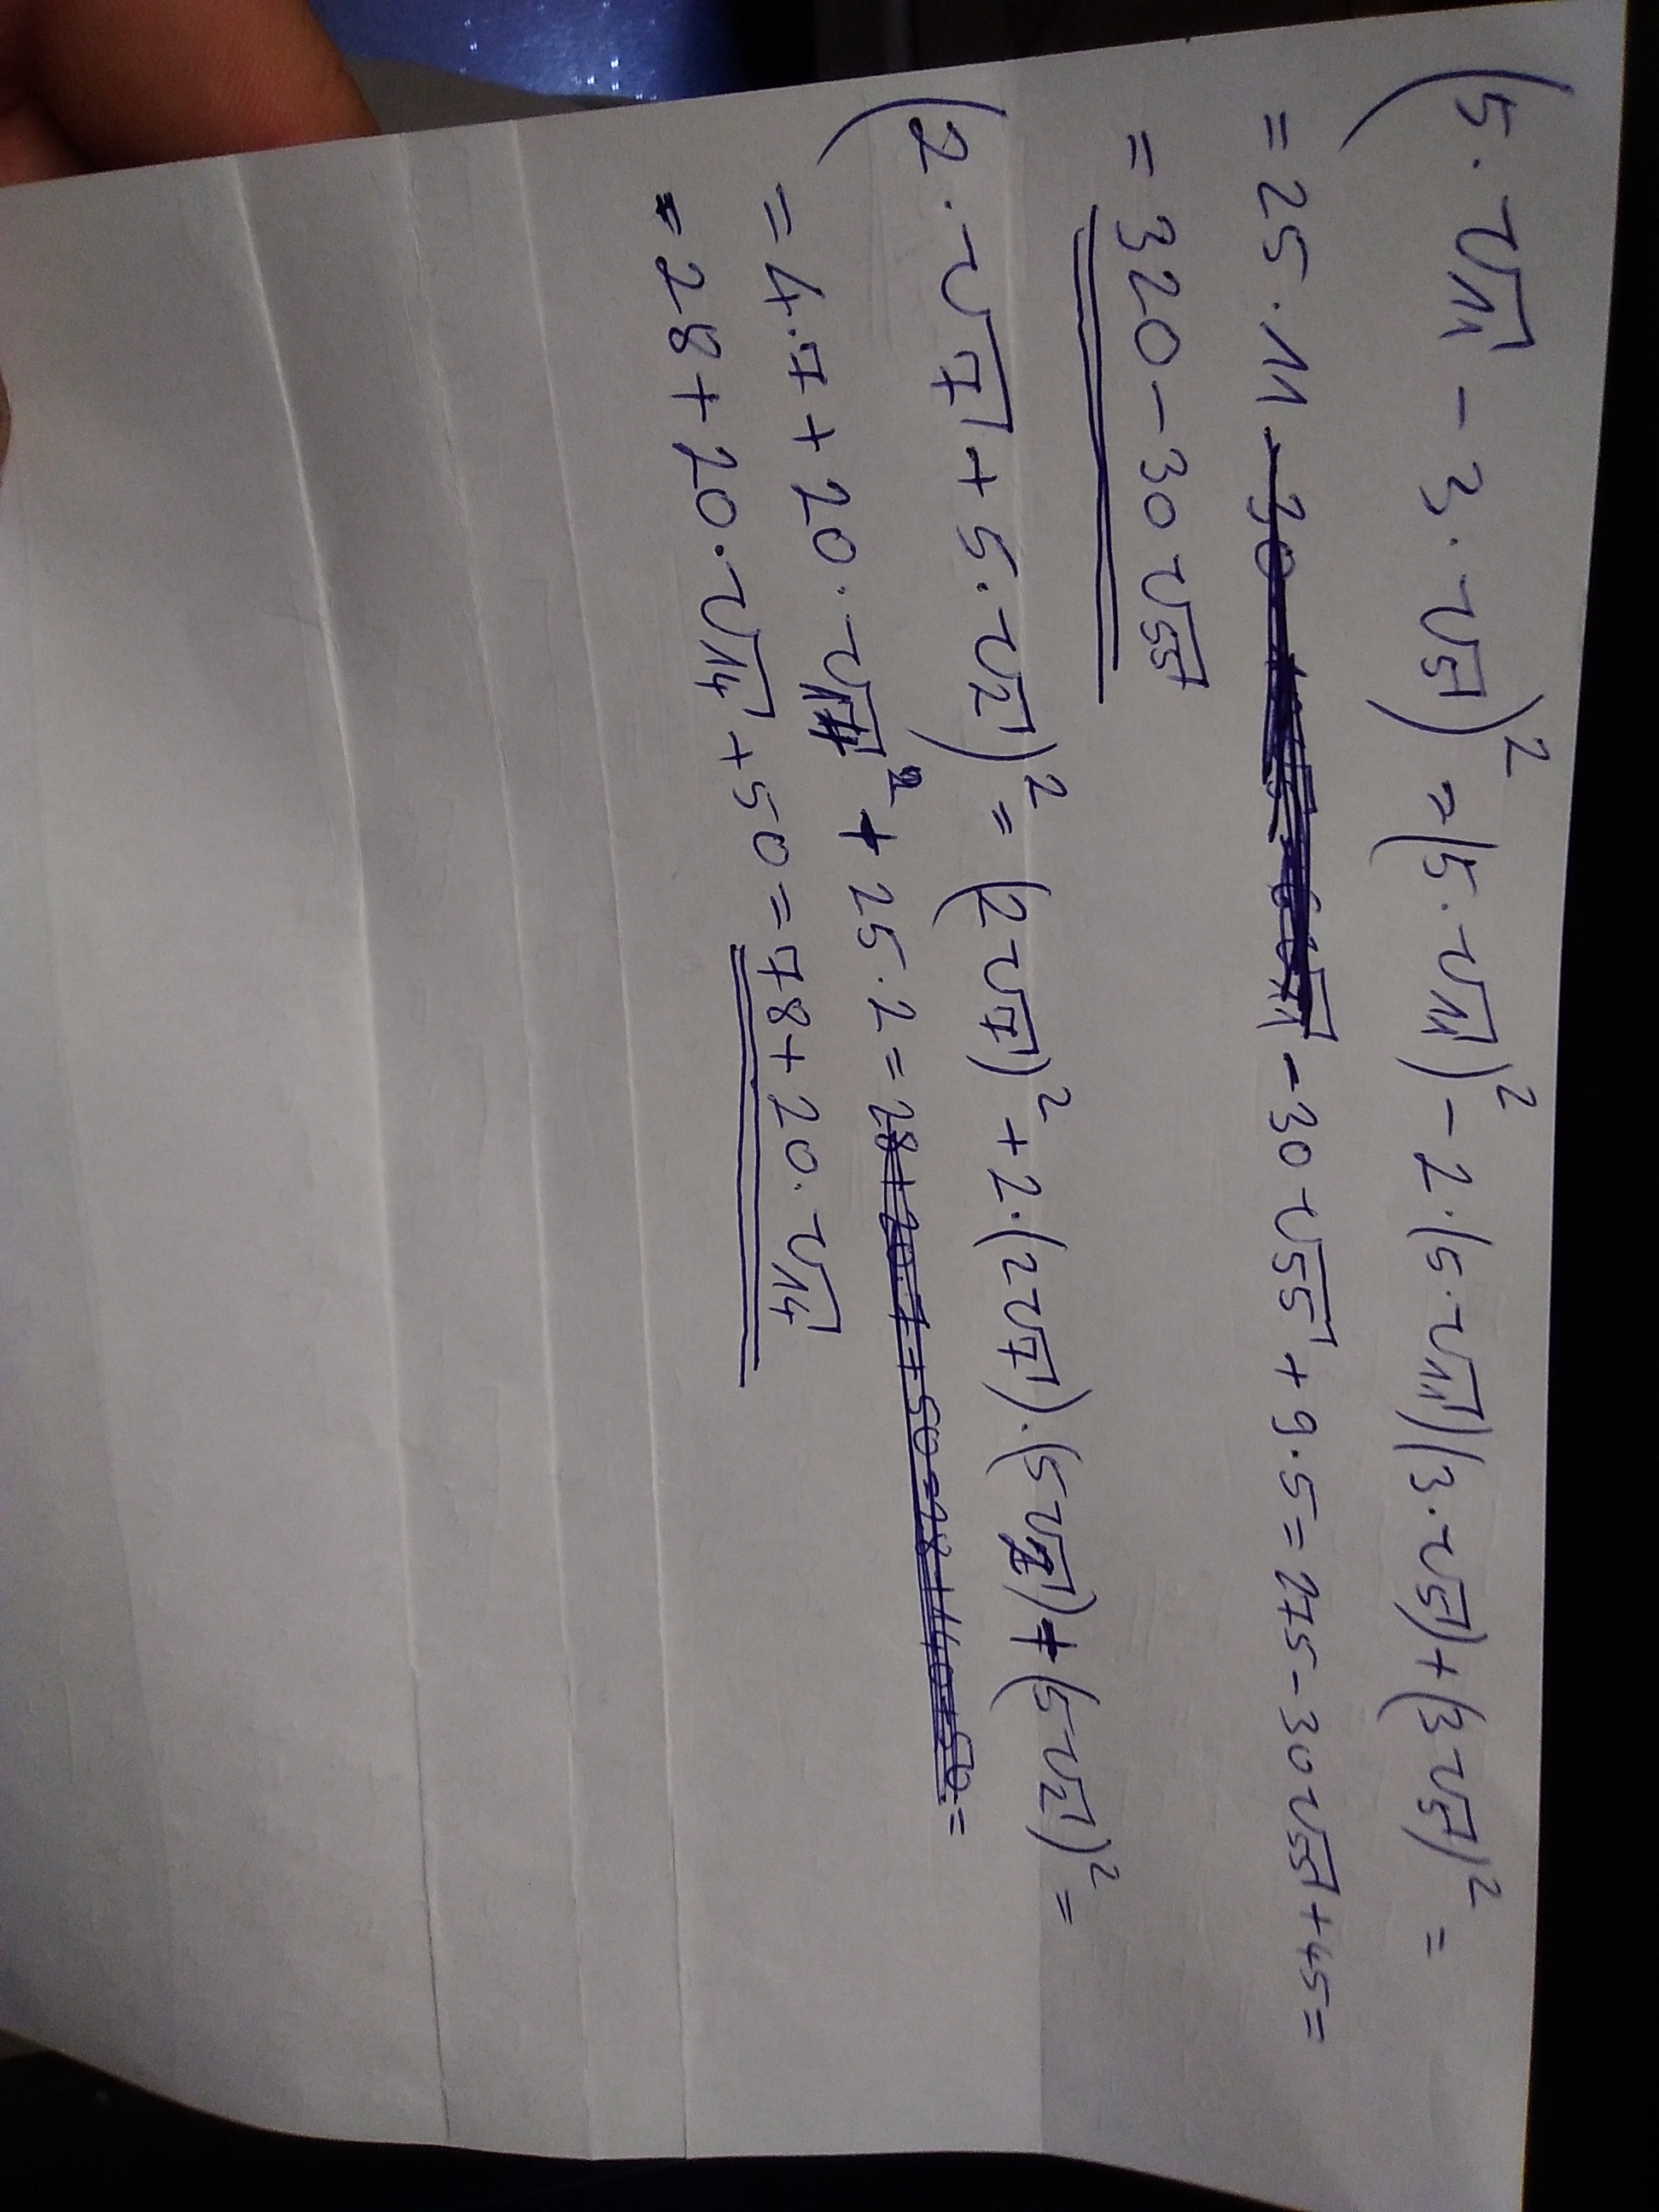 (5·√11 - 3·√5)² = (5·√11)² - 2·(5·√11)(3·√5)+(3√5)² =
= 25·11 - 30√55 + 9·5 = 275 - 30√55 + 45 =
= 320 - 30√55
(2·√7 + 5·√2)² = (2√7)² + 2·(2√7)·(5√2)+(5√2)² =
= 4·7 + 20·√14 + 25·2 = 28 + 20·7 + 50 = 28 + 140 + 50 =
= 28 + 20·√14 + 50 = 78 + 20·√14